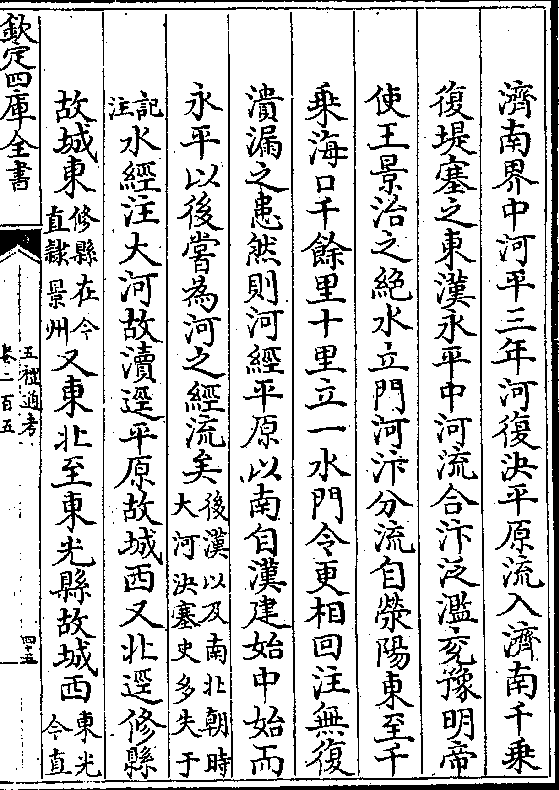 濟南界中河平三年河復決平原流入濟南千乘
復堤塞之東漢永平中河流合汴泛濫兖豫明帝
使王景治之絶水立門河汴分流自滎陽東至千
乘海口千餘里十里立一水門令更相回注無復
潰漏之患然則河經平原以南自漢建始中始而
永平以後嘗為河之經流矣後漢以及南北朝時大河決塞史多失于
記注水經注大河故瀆逕平原故城西又北逕修縣
故城東修縣在今直隷景州又東北至東光縣故城西東光今直
欽定四庫全書
五禮通考
卷二百五
四十五